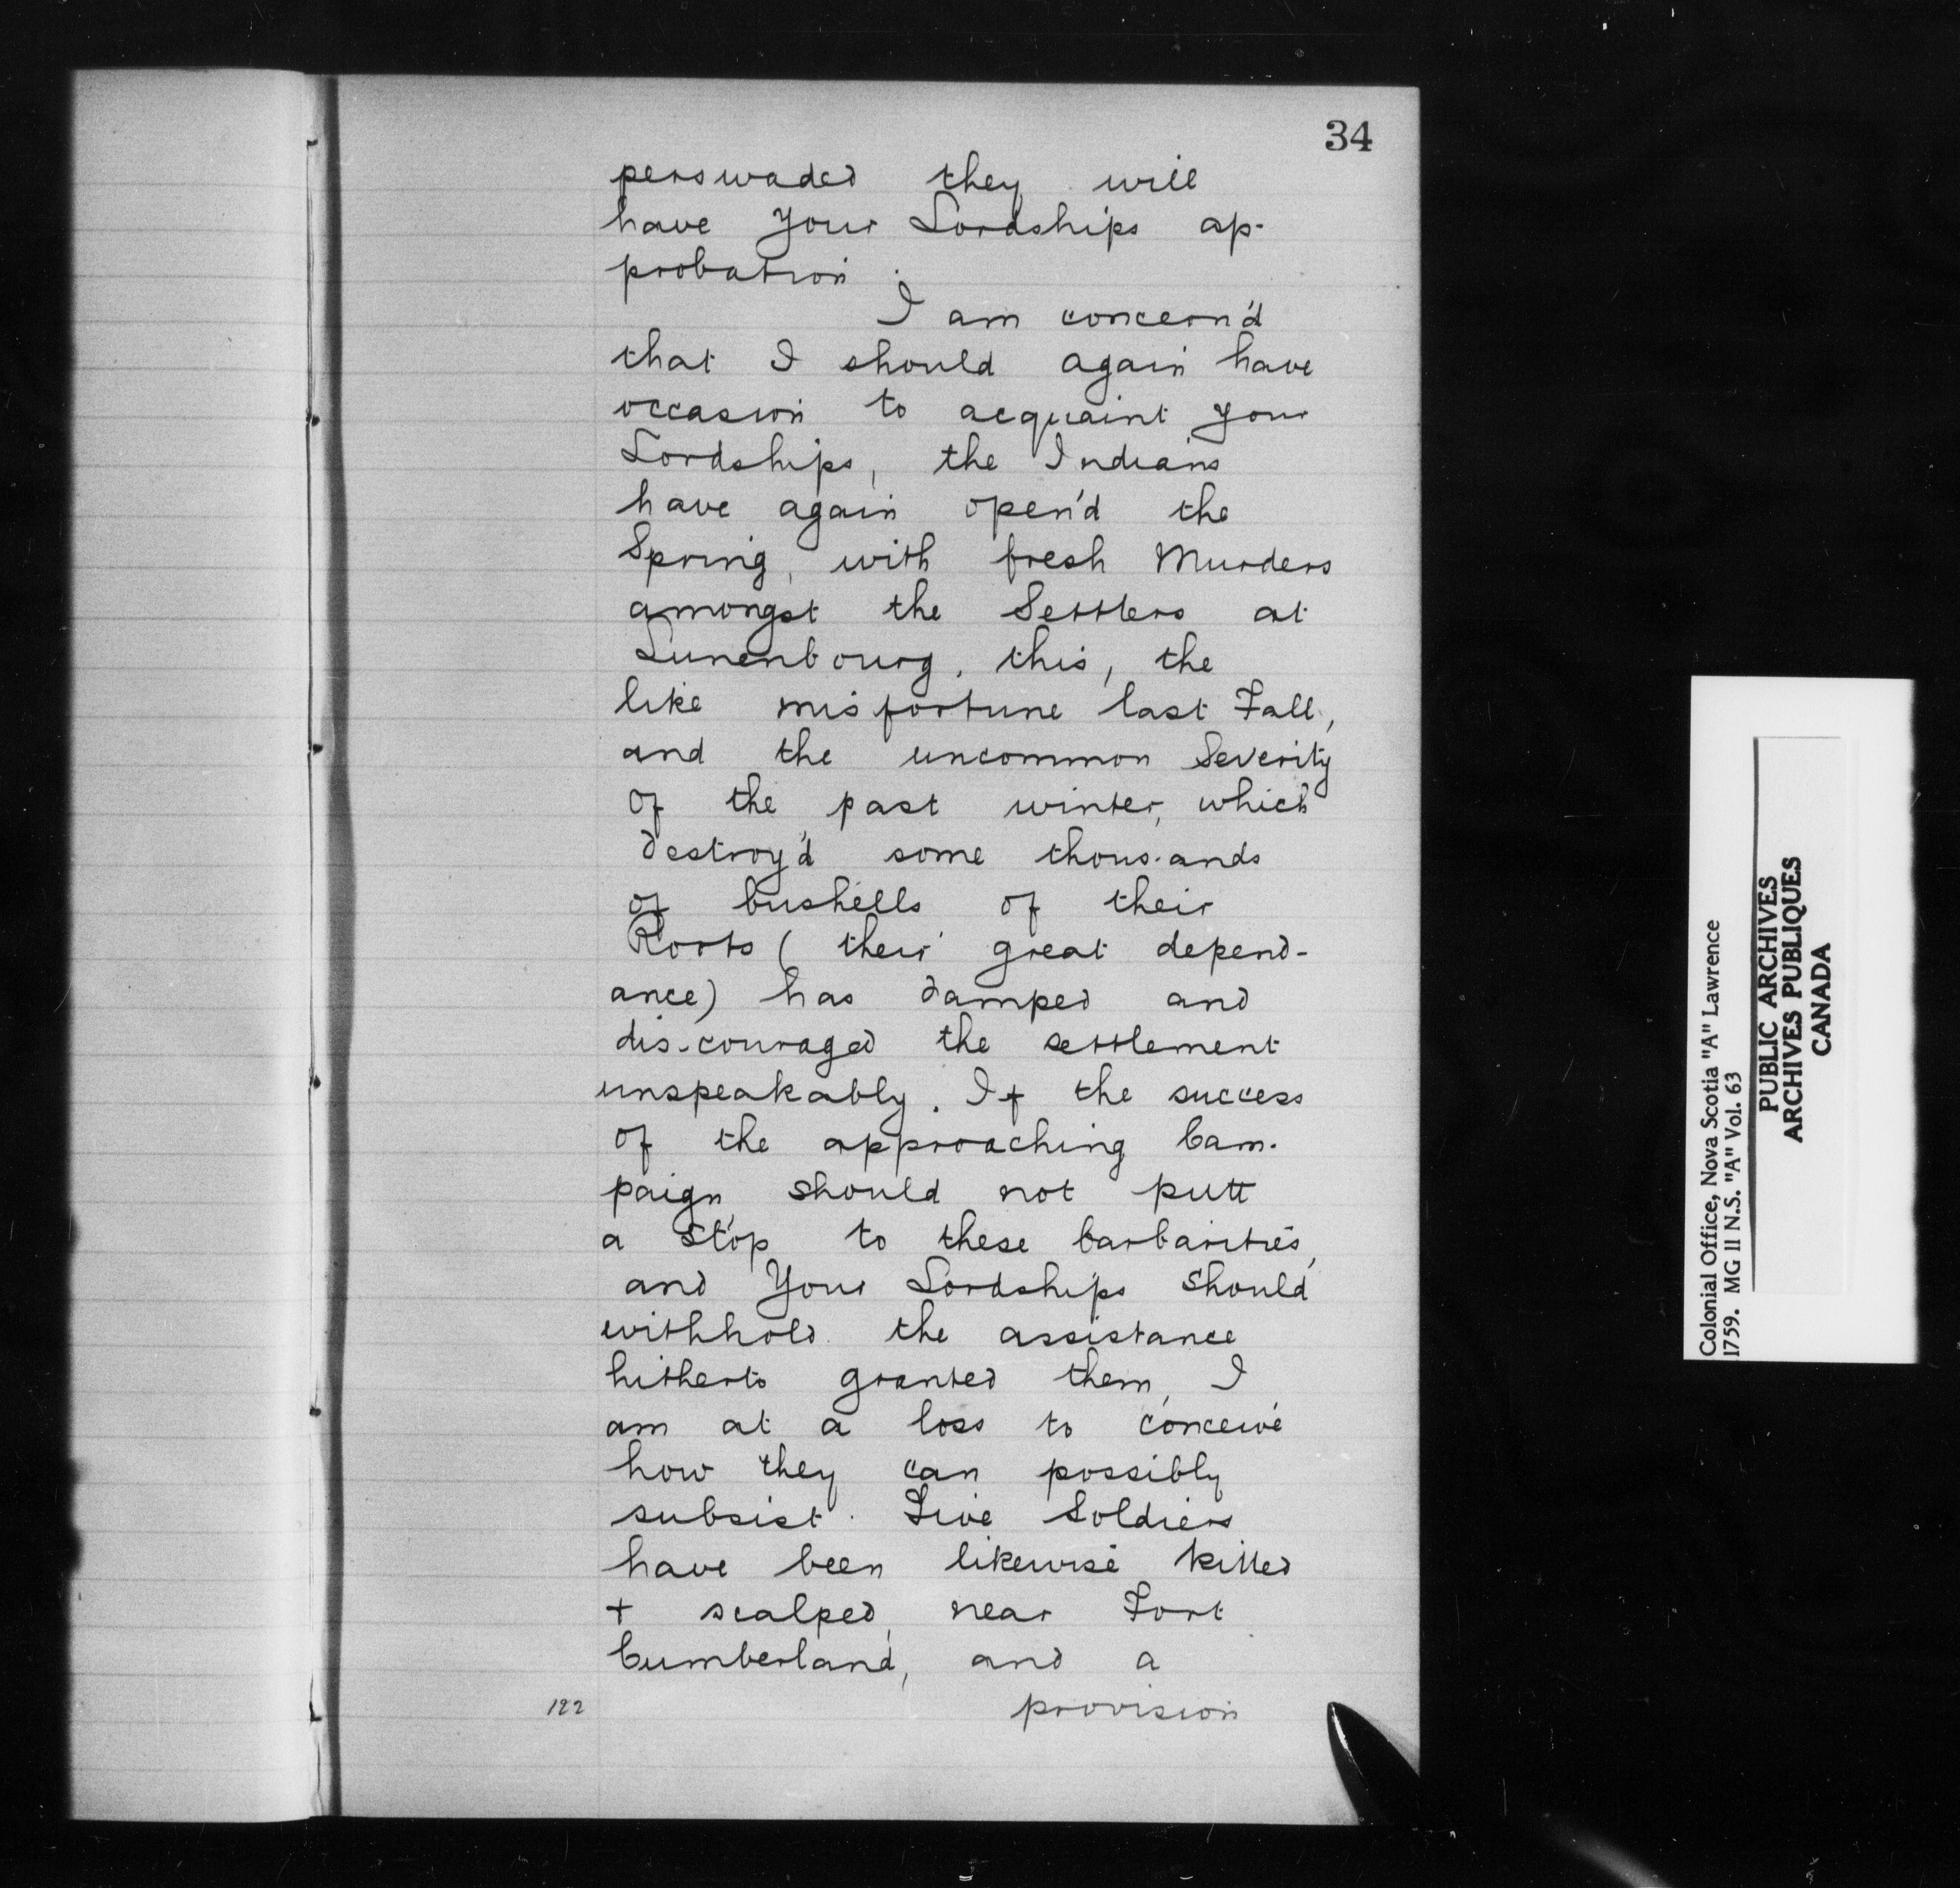 34
perswaded they will
have Your Lordships ap-
probation.
I am concern'd
that I should again have
occasion to acquaint your
Lordships, the Indians
have again open'd the
Spring, with fresh Murders
amongst the Settlers at
Lunenbourg. this, the
like misfortune last Fall,
and the uncommon Severity
of the past winter, which
destroy'd some thous-ands
of bushells of their
Roots (their great depend-
ance) has damped and
dis-couraged the settlement
unspeakably. If the success
of the approaching Cam-
paign should not putt
a Stop to these barbarities,
and Your Lordships should
withhold the assistance
hitherto granted them, I
am at a loss to conceive
how they can possibly
subsist. Five Soldiers
have been likewise killed
+ scalped, near Fort
Cumberland, and a
122
provision
Colonial Office, Nova Scotia "A" Lawrence
1759. MG 11 N.S. "A" Vol. 63
PUBLIC ARCHIVES
ARCHIVES PUBLIQUES
CANADA